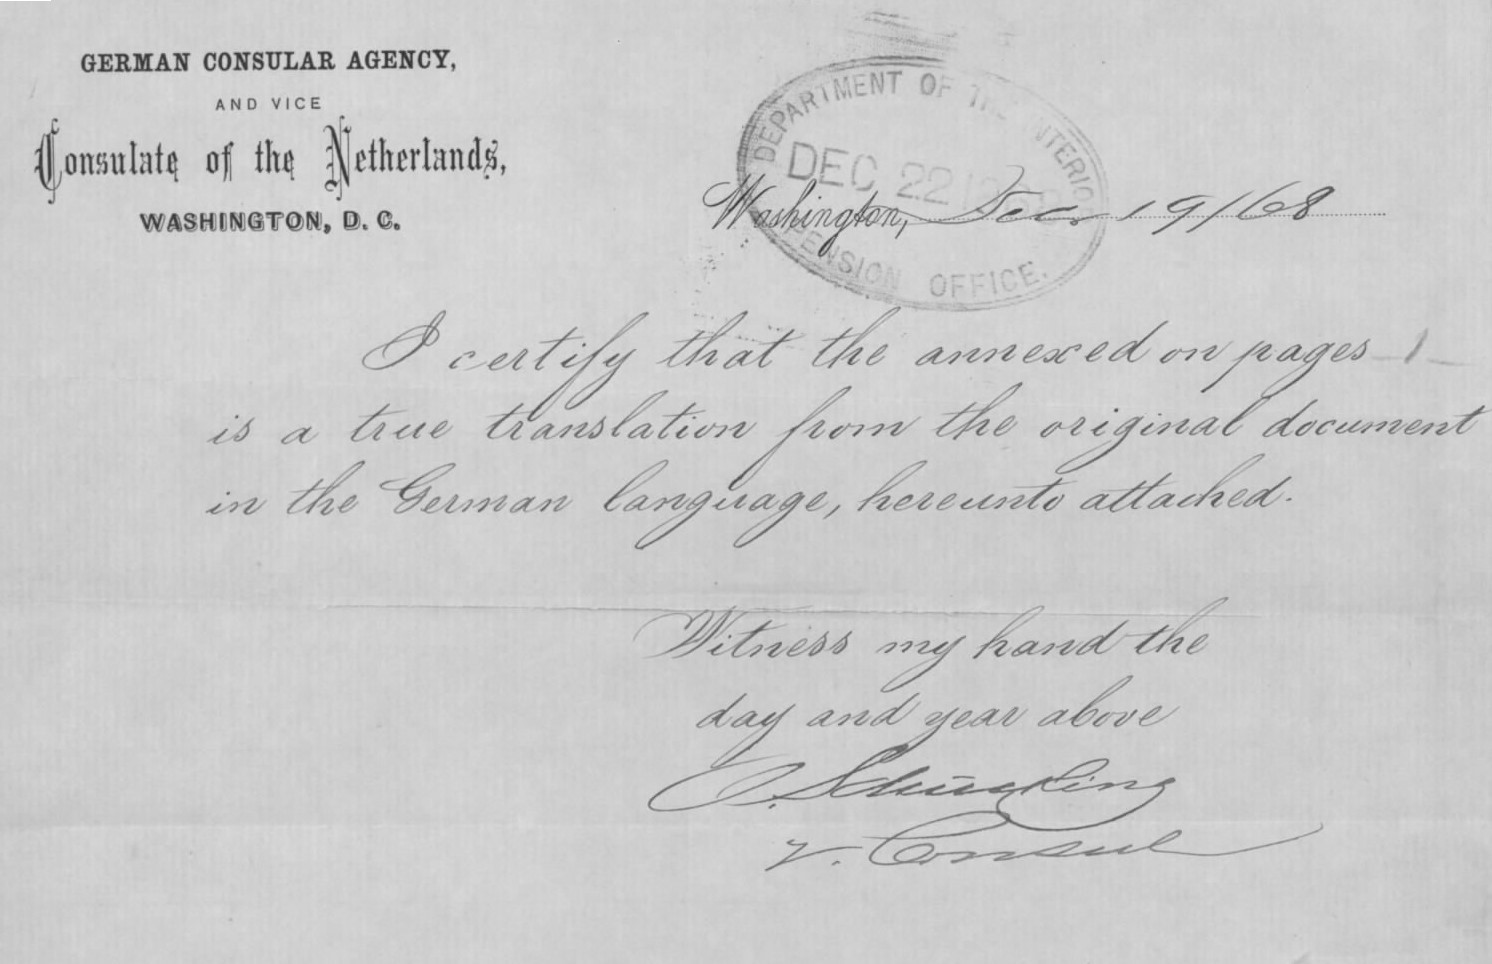 GERMAN CONSULAR AGENCY,
AND VICE
Consulate of the Netherlands,
WASHINGTON, D. C.
DEPARTMENT OF THE INTERIOR
DEC 22 1868
PENSION OFFICE.
Washington, Dec. 19/68
I certify that the annexed on pages 1
is a true translation from the original document
in the German language, hereunto attached.
Witness my hand the
day and year above
Schücking
V. Consul